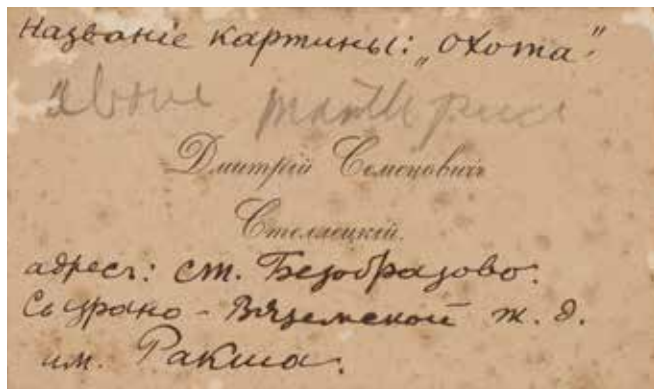 Названіе картины: „Охота"
above mantle piece
Дмитрій Семеновичъ
Стеллецкій.
адресъ: ст. Безобразово.
Сызрано-Вяземской ж. д.
им. Ракша.